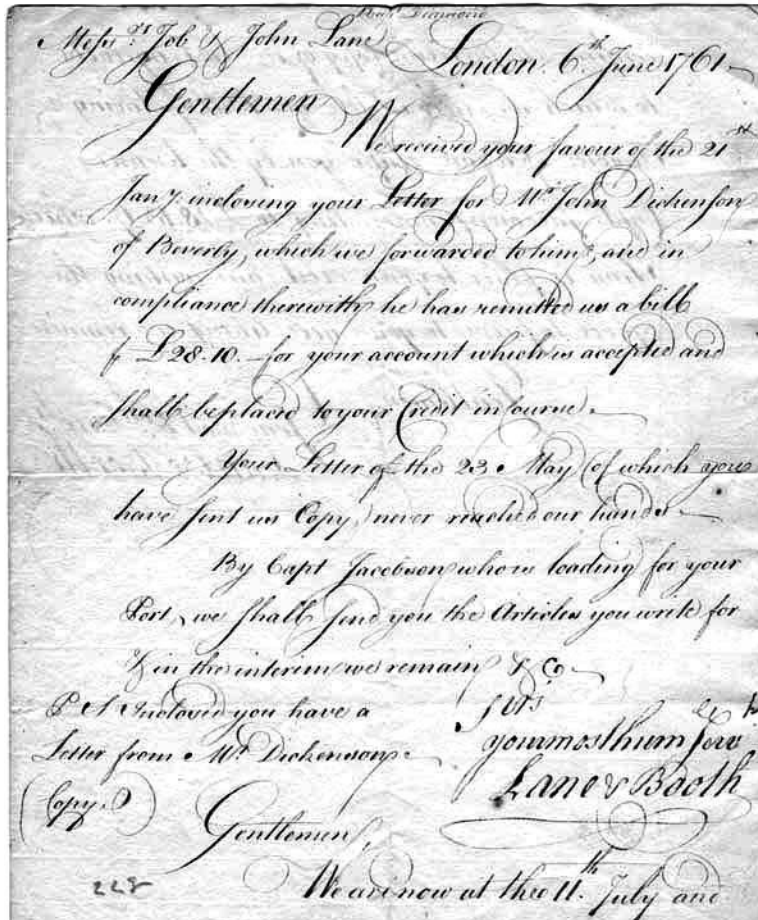 Mess.rs Job & John Lane
London. 6.th June 1761
Gentlemen
We received your favour of the 21st
Jany. inclosing your Letter for Mr John Dickenson
of Beverly, which we forwarded to him, and in
compliance therewith he has remitted us a bill
£28.10.— for your account which is accepted and
shall be placed to your Credit in course.
Your Letter of the 23. May (of which you
have sent us Copy) never reached our hands
By Capt Jacobson who is loading for your
Port, we shall send you the Articles you write for
& in the interim we remain & Co
P S Inclosed you have a
Letter from Mr. Dickenson
your most hum Serv
Lane & Booth
(Copy)
Gentlemen,
We are now at the 11.th July and
228